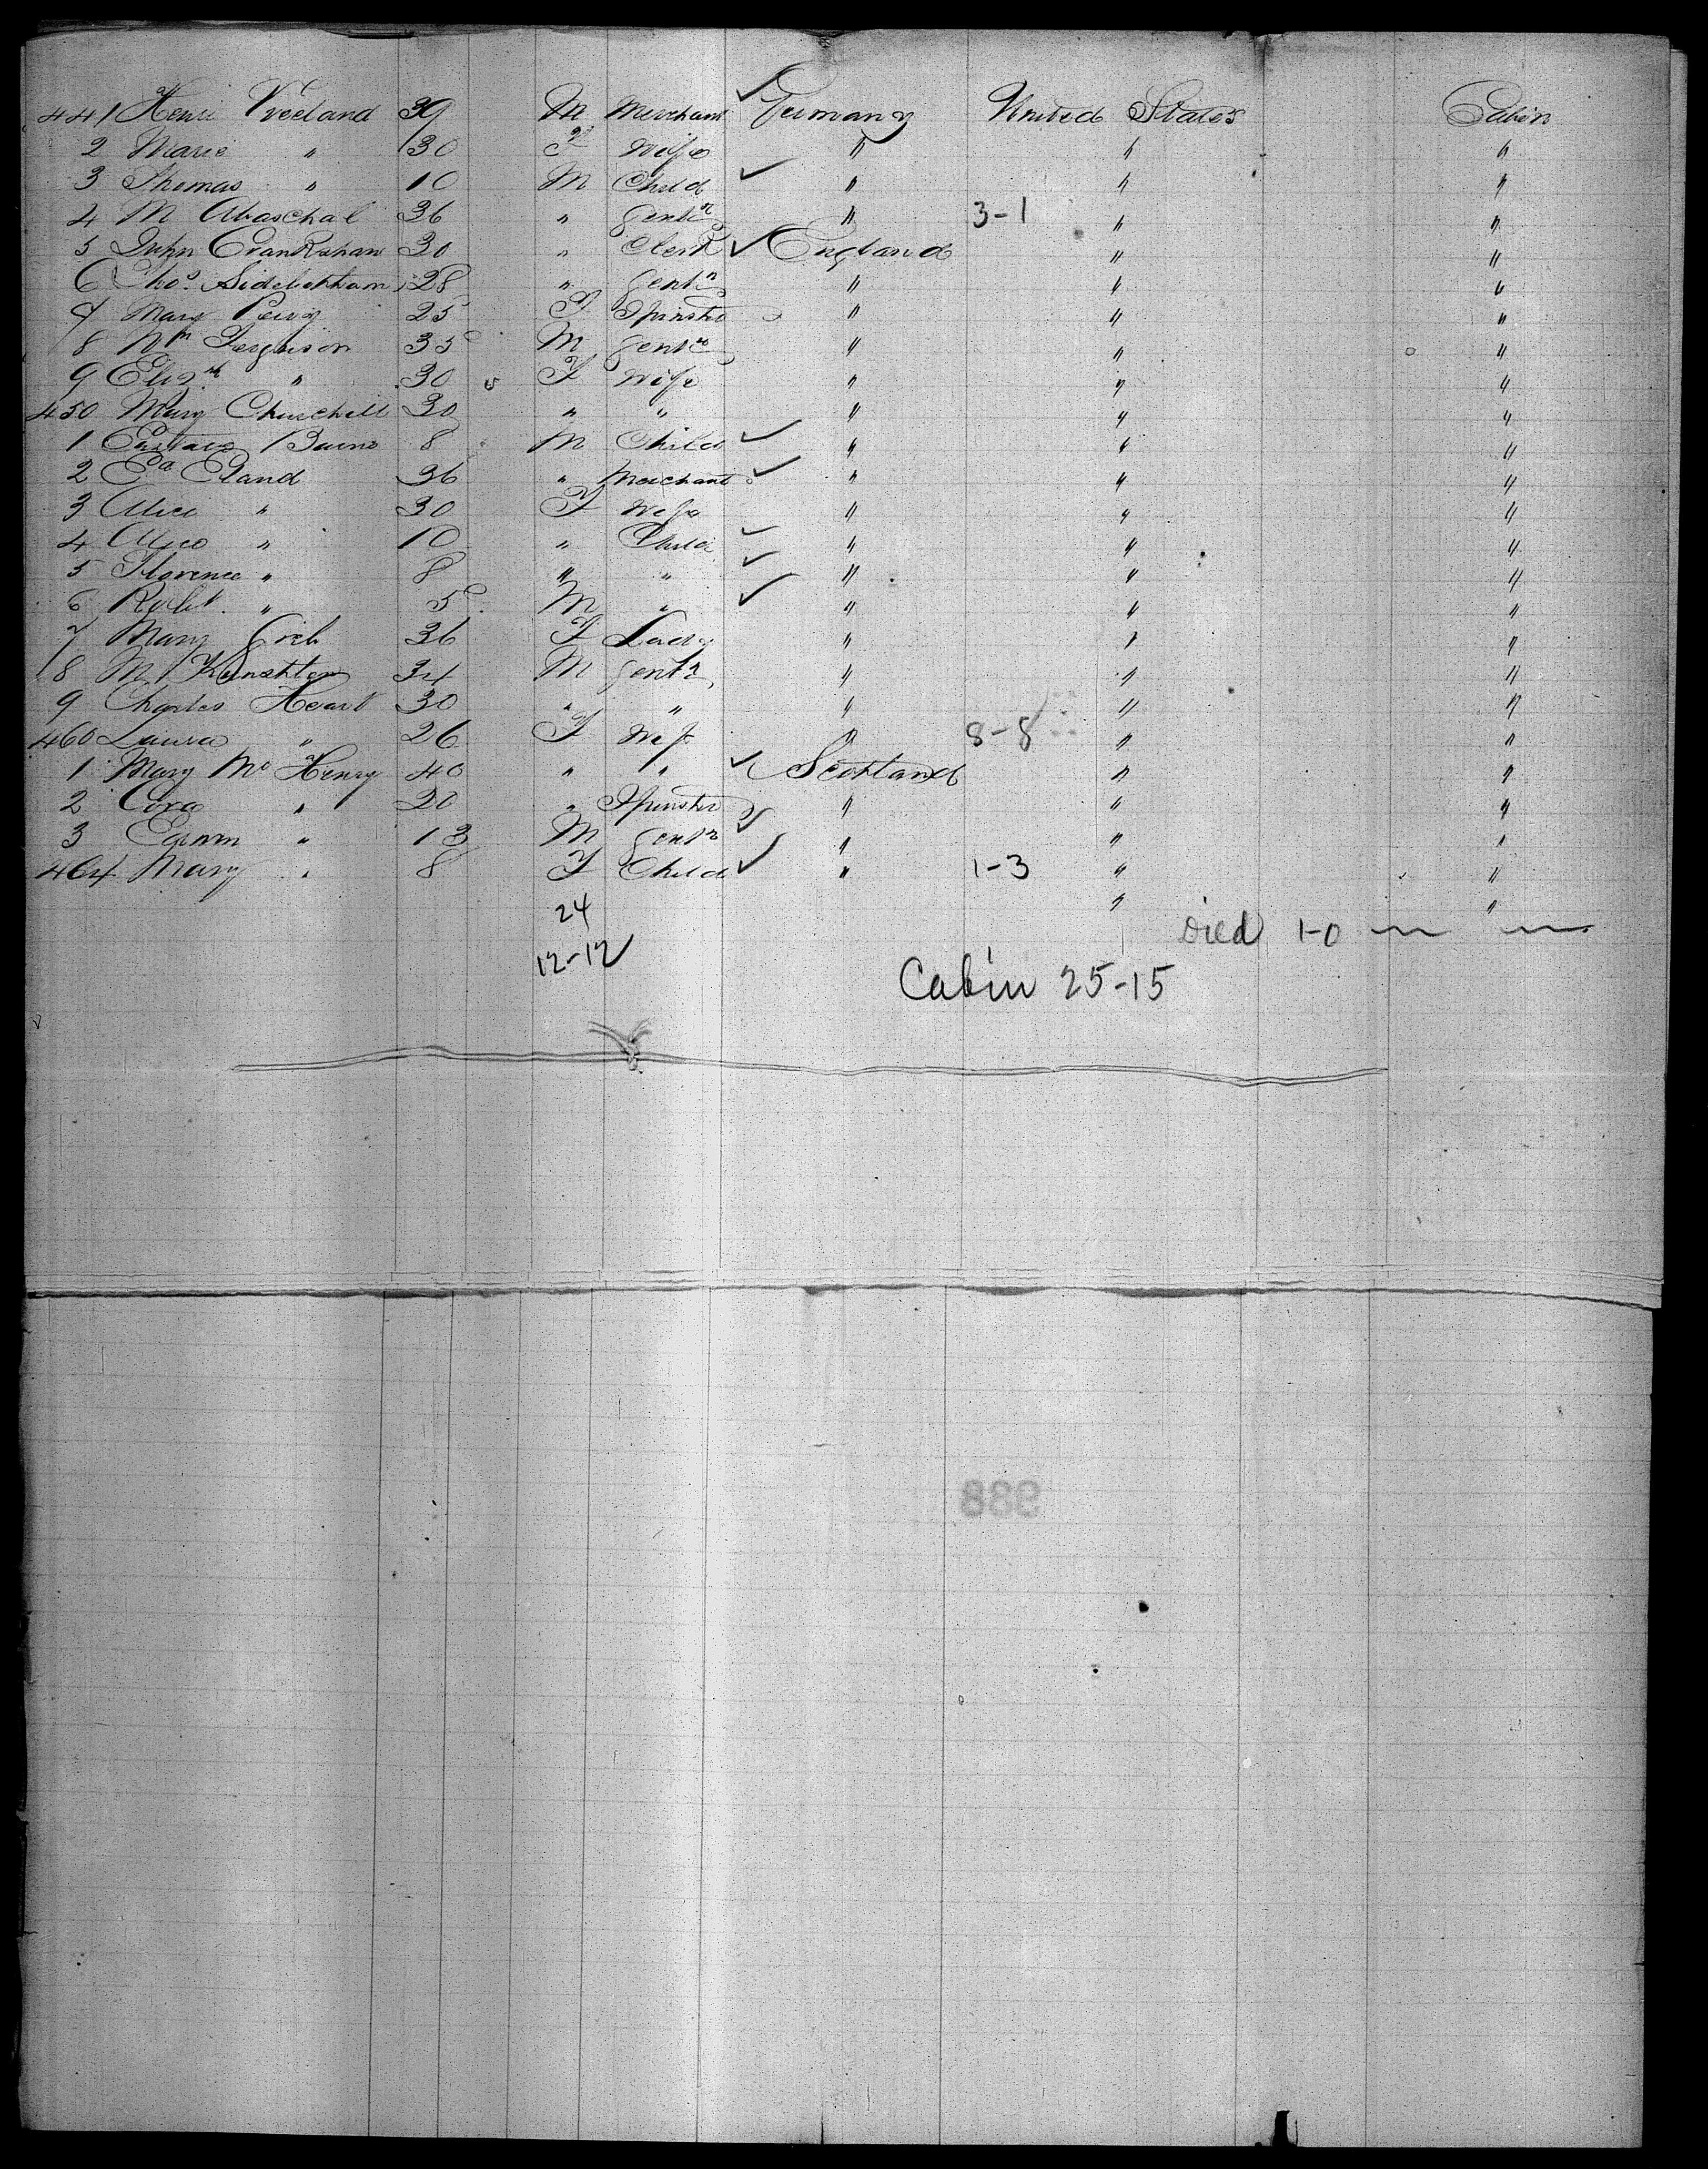 441 Henri Vreeland 39 M Merchant Germany United States Cabin
2 Marie " 30 F Wife " " "
3 Thomas " 10 M Child " " "
4 M 36 " Gentn " 3-1 " "
5 John Crankshaw 30 " Clerk England " "
6 Thos Sidebottham 28 " Gentn " " "
7 Mary Percy 25 F Spinster " " "
8 Wm Ferguson 35 M Gentn " " "
9 Elizth " 30 F Wife " " "
450 Mary Churchill 30 " " " " "
1 Eustace 8 M Child " " "
2 Eland 36 " Merchant " " "
3 Alice " 30 F Wife " " "
4 Alice " 10 " Child " " "
5 Florence " 8 " " " " "
6 Robt " 5 M " " " "
7 Mary 36 F Lady " " "
8 M 34 M Gentn " " "
9 Charles Heart 30 " " " " "
460 Laura " 26 F Wife " 8-8 " "
1 Mary Mc Henry 40 " " Scotland " "
2 Cora " 20 " Spinster " " "
3 Edwin " 13 M Gentn " " "
464 Mary " 8 F Child " 1-3 " "
24 " "
Died 1-0
12-12
Cabin 25-15
988